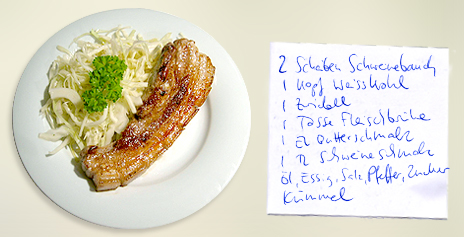 2 Scheiben Schweinebauch
1 Kopf Weisskohl
1 Zwiebel
1 Tasse Fleischbrühe
1 EL Butterschmalz
1 TL Schweineschmalz
Öl, Essig, Salz, Pfeffer, Zucker
Kümmel